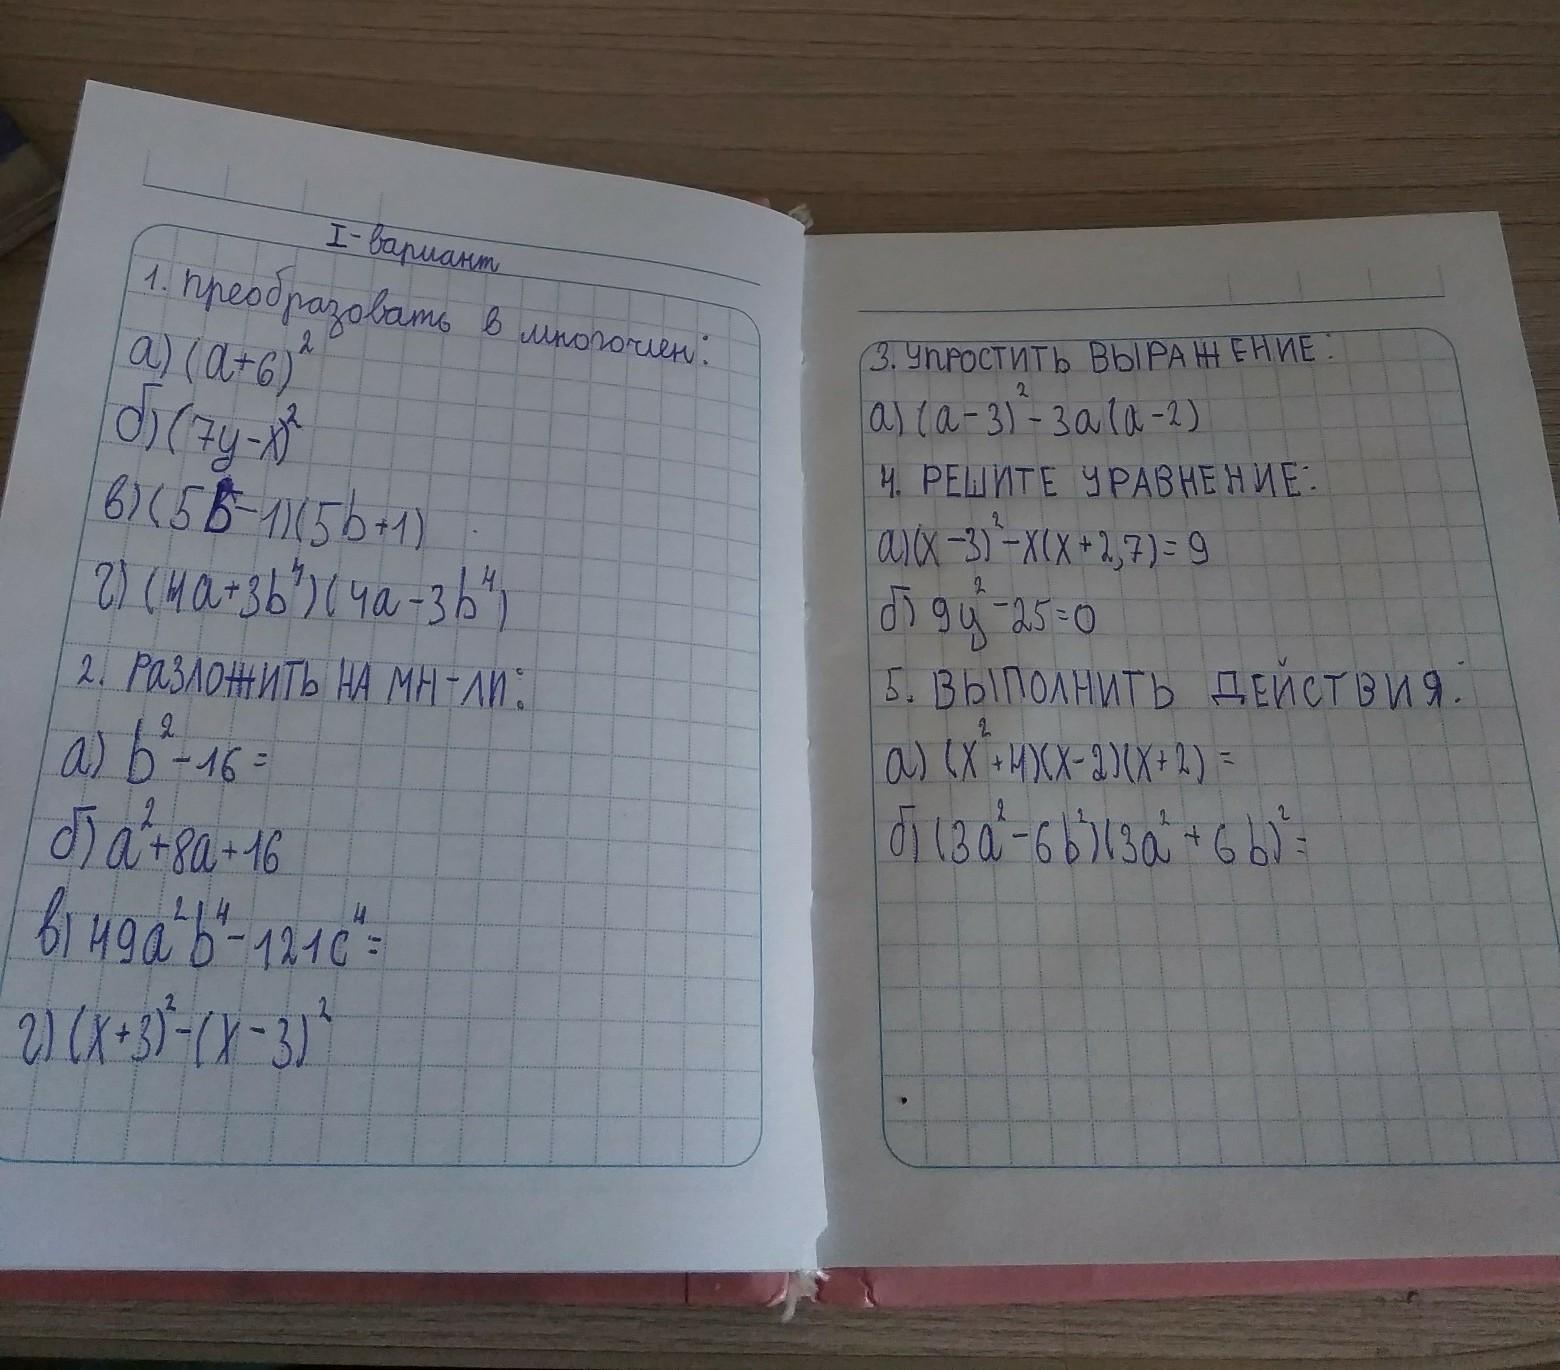 I-вариант
1. Преобразовать в многочлен:
а) (a+6)²
б) (7y-x)²
в) (5b-1)(5b+1)
г) (4a+3b⁴)(4a-3b⁴)
2. РАЗЛОЖИТЬ НА МН-ЛИ:
а) b²-16=
б) a²+8a+16
в) 49a²b⁴-121c⁴=
г) (x+3)²-(x-3)²
3. УПРОСТИТЬ ВЫРАЖЕНИЕ:
а) (a-3)²-3a(a-2)
4. РЕШИТЕ УРАВНЕНИЕ:
а) (x-3)²-x(x+2,7)=9
б) 9y²-25=0
5. ВЫПОЛНИТЬ ДЕЙСТВИЯ:
а) (x²+4)(x-2)(x+2)=
б) (3a²-6b²)(3a²+6b)²=